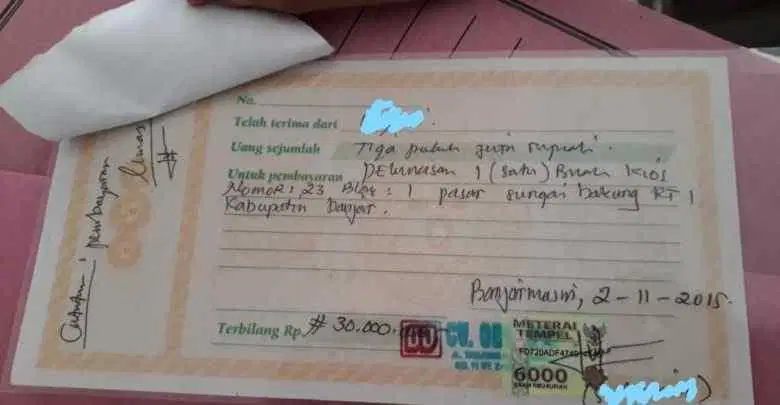 No.
Telah terima dari
Uang sejumlah Tiga puluh juta rupiah.
Untuk pembayaran pelunasan 1 (satu) Buah Kios
Nomor: 23 Blok: 1 pasar sungai bakung RT 1
Kabupaten Banjar.
Banjarmasin, 2-11-2015.
Terbilang Rp # 30.000.
CV.
METERAI
TEMPEL
6000
Catatan: pembayaran
lunas